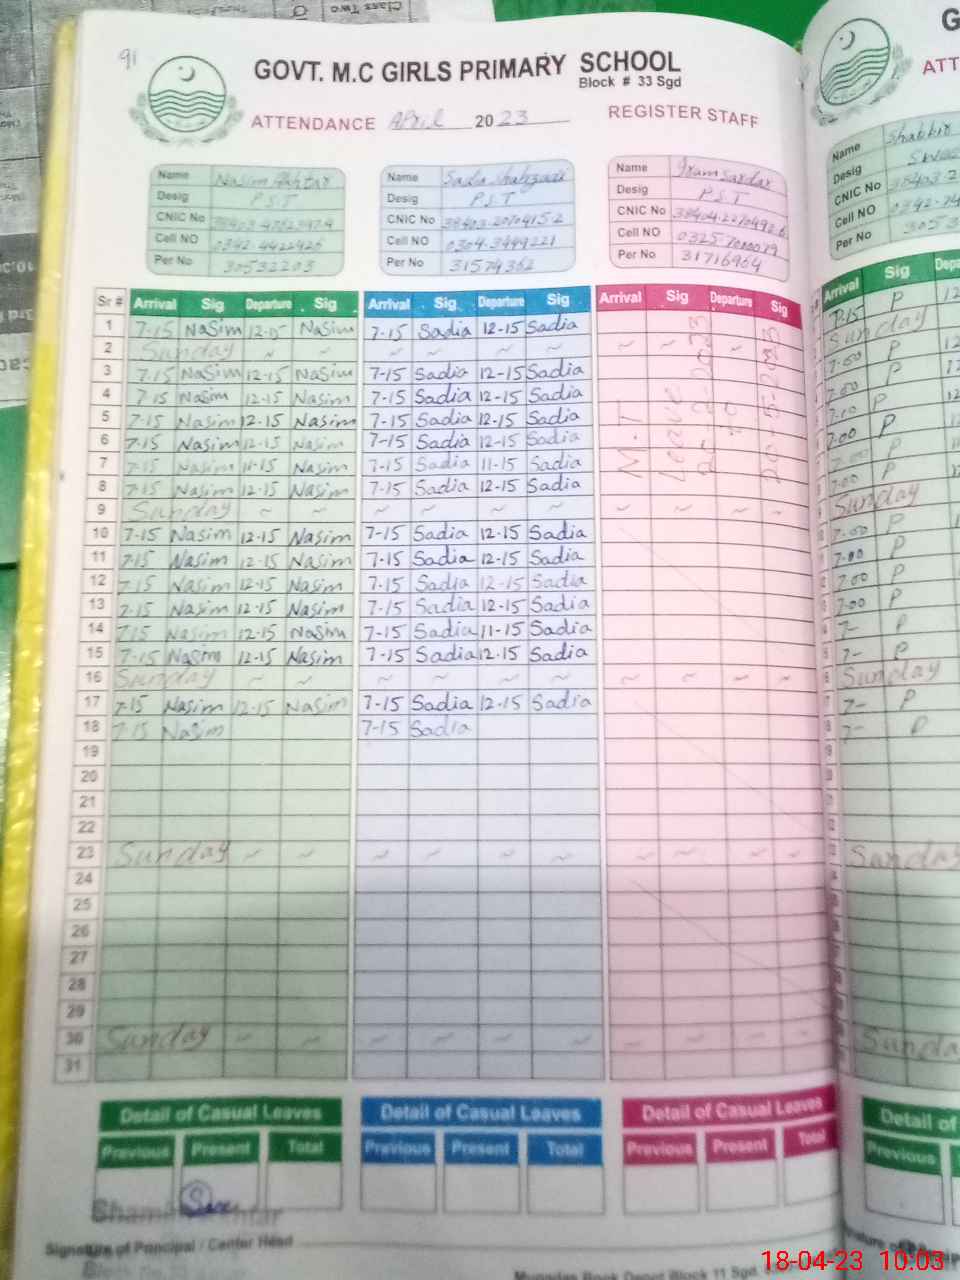 91
GOVT. M.C GIRLS PRIMARY SCHOOL
Block # 33 Sgd
ATTENDANCE April 2023 REGISTER STAFF
Name Nasim Akhtar
Desig P.S.T
CNIC No
Cell NO 0342-4422426
Per No 30532203
Name Sadia Shahzadi
Desig P.S.T
CNIC No 38403-2070415-2
Cell NO 0304-3499221
Per No 31574362
Name Iram Sardar
Desig P.S.T
CNIC No 38404-2270492-6
Cell NO 0325-7000079
Per No 31716964
Sr # Arrival Sig Departure Sig Arrival Sig Departure Sig Arrival Sig Departure Sig
1 7-15 Nasim 12-15 Nasim 7-15 Sadia 12-15 Sadia
2 Sunday ~ ~ ~ ~ ~ ~ ~ ~ ~
3 7-15 Nasim 12-15 Nasim 7-15 Sadia 12-15 Sadia
4 7-15 Nasim 12-15 Nasim 7-15 Sadia 12-15 Sadia
5 7-15 Nasim 12-15 Nasim 7-15 Sadia 12-15 Sadia
6 7-15 Nasim 12-15 Nasim 7-15 Sadia 12-15 Sadia
7 7-15 Nasim 11-15 Nasim 7-15 Sadia 11-15 Sadia
8 7-15 Nasim 12-15 Nasim 7-15 Sadia 12-15 Sadia
M.T
Leave
20-5-2023
9 Sunday ~ ~ ~ ~ ~ ~ ~ ~ ~ ~
10 7-15 Nasim 12-15 Nasim 7-15 Sadia 12-15 Sadia
11 7-15 Nasim 12-15 Nasim 7-15 Sadia 12-15 Sadia
12 7-15 Nasim 12-15 Nasim 7-15 Sadia 12-15 Sadia
13 7-15 Nasim 12-15 Nasim 7-15 Sadia 12-15 Sadia
14 7-15 Nasim 12-15 Nasim 7-15 Sadia 11-15 Sadia
15 7-15 Nasim 12-15 Nasim 7-15 Sadia 12-15 Sadia
16 Sunday ~ ~ ~ ~ ~ ~ ~ ~ ~ ~
17 7-15 Nasim 12-15 Nasim 7-15 Sadia 12-15 Sadia
18 7-15 Nasim 7-15 Sadia
19
20
21
22
23 Sunday ~ ~ ~ ~ ~ ~ ~ ~ ~ ~
24
25
26
27
28
29
30 Sunday ~ ~ ~ ~ ~ ~ ~ ~ ~ ~
31
Detail of Casual Leaves Detail of Casual Leaves Detail of Casual Leaves
Previous Present Total Previous Present Total Previous Present Total
Signature of Principal / Center Head
Book Depot Block 11 Sgd.
Name Shabbir
Desig
CNIC No 38403-2
Cell NO 0342-74
Per No
Arrival Sig
7-15 P
Sunday
7-00 P
7-00 P
7-00 P
7-00 P
7-00 P
7-00 P
Sunday
7-00 P
7-00 P
7-00 P
7-00 P
7- P
7- P
Sunday
7- P
7- P
Sunday
Sunday
Detail of
Previous
18-04-23 10:03